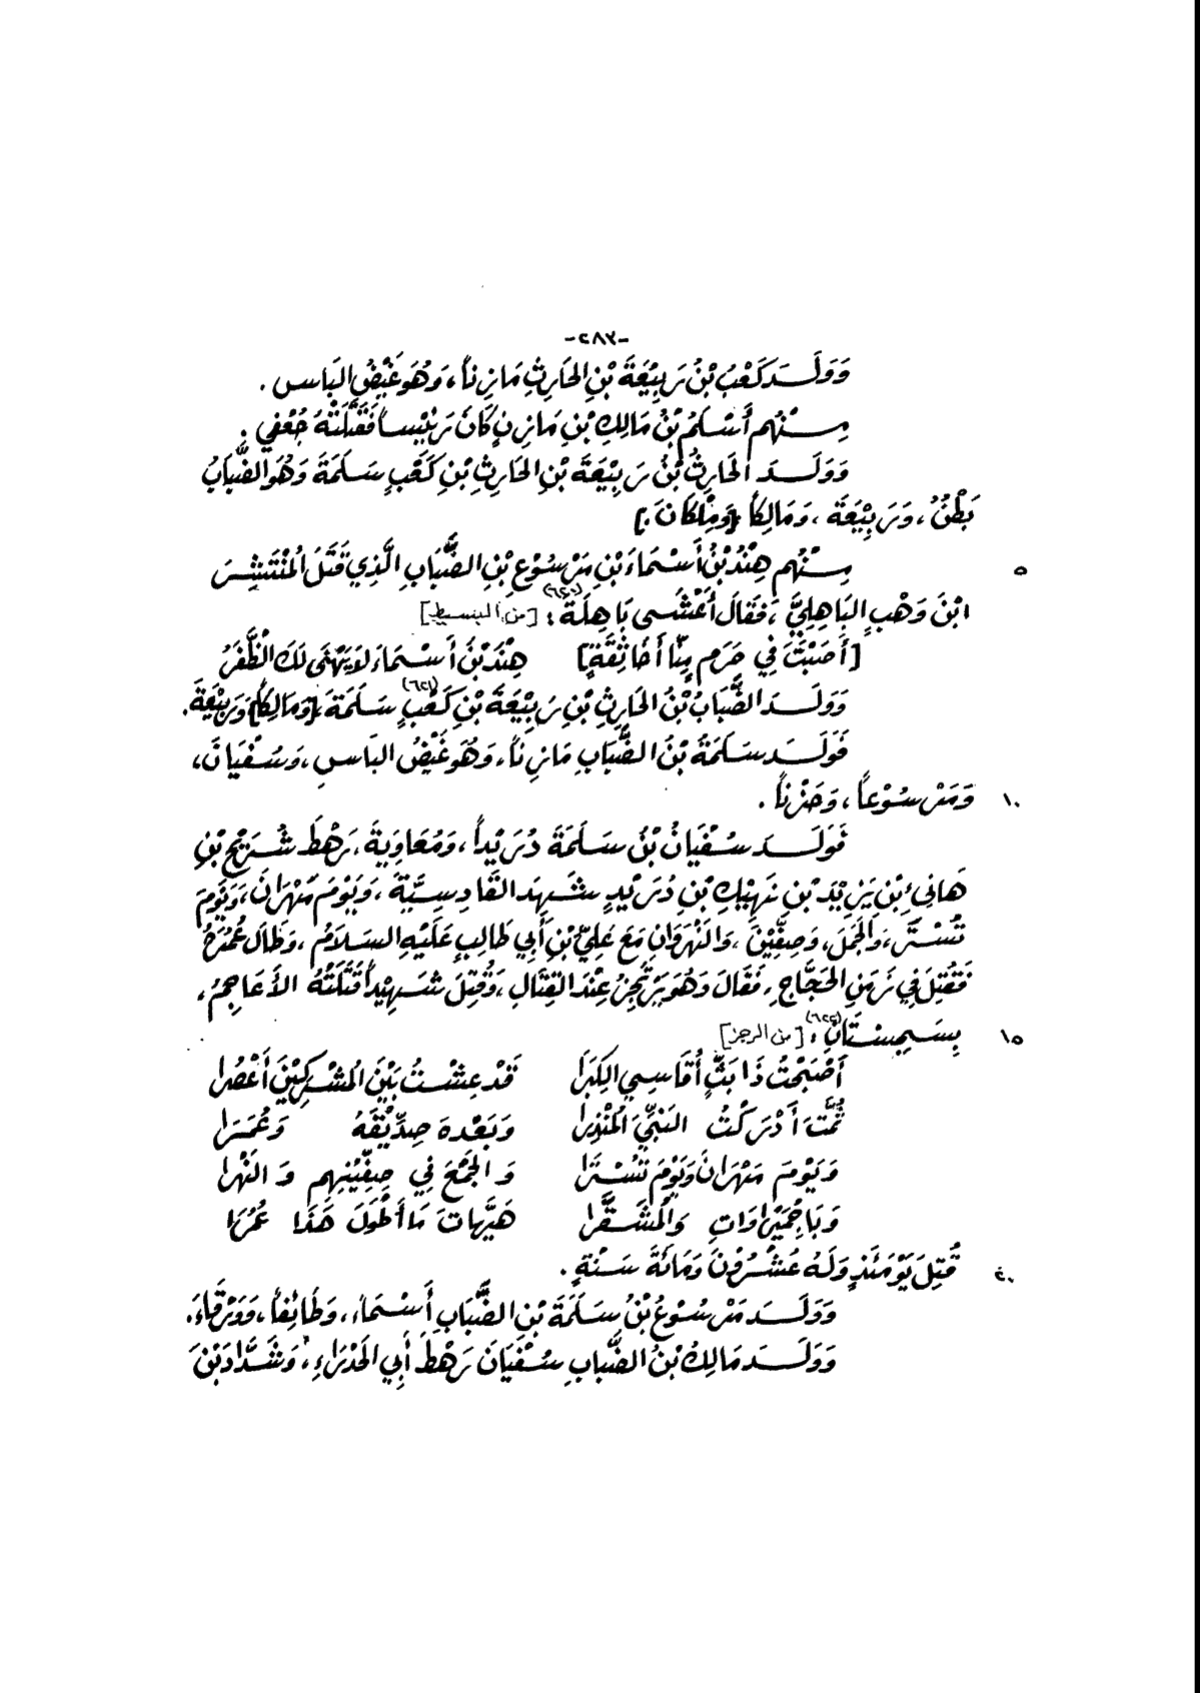 -٢٨٣-
وَوَلَــدَ كَعْبُ بْنُ رَبِيْعَةَ بْنِ الحَارِثِ مَازِناً، وَهُوَ غَيْضُ البَأسِ .
مِــنْهُم أَسْلَمُ بْنُ مَالِكِ بْنِ مَازِنٍ كَانَ رَئِيْساً فَقَتَلَتْهُ جُعْفِي .
وَوَلَــدَ الحَارِثُ بْنُ رَبِيْعَةَ بْنِ الحَارِثِ بْنِ كَعْبٍ سَلَمَةَ وَهُوَ الضَّبَابُ
بَطْنٌ، وَرَبِيْعَةَ، وَمَالِكاً [وَمِلْكَانَ .]
٥ مِــنْهُم هِنْدُ بْنُ أَسْمَاءَ بْنِ مَرْسُوْعِ بْنِ الضَّبَابِ الَّذِي قَتَلَ المُنْتَشِرَ
ابْنَ وَهْبٍ البَاهِلِيَّ، فَقَالَ أَعْشَى بَاهِلَةَ (٦٢٠): [من البسيط]
[أَصَبْتَ فِي حَرَمٍ مِنّا أَخَا ثِقَةٍ] هِنْدُ بْنُ أَسْمَاءَ لاَ يَهْنَى لَكَ الظَّفَرُ
وَوَلَــدَ الضَّبَابُ بْنُ الحَارِثِ بْنِ رَبِيْعَةَ بْنِ كَعْبٍ (٦٢١) سَلَمَةَ، [وَمَالِكاً] وَرَبِيْعَةَ.
فَوَلَــدَ سَلَمَةُ بْنُ الضَّبَابِ مَازِناً، وَهُوَ غَيْضُ البَأسِ، وَسُفْيَانَ،
١٠ وَمَرْسُوْعاً، وَحَزْناً .
فَوَلَــدَ سُفْيَانُ بْنُ سَلَمَةَ دُرَيْداً، وَمُعَاوِيَةَ، رَهْطَ شُرَيْحِ بْنِ
هَانِئِ بْنِ يَزِيْدَ بْنِ نَهِيْكِ بْنِ دُرَيْدٍ شَهِدَ القَادِسِيَّةَ، وَيَوْمَ مَهْرَانَ، وَيَوْمَ
تُسْتَرَ، وَالجَمَلَ، وَصِفِّيْنَ، وَالنَّهْرَوَانِ مَعَ عَلِيِّ بْنِ أَبِي طَالِبٍ عَلَيْهِ السَلاَمُ، وَطَالَ عُمُرُهُ
فَقُتِلَ فِي زَمَنِ الحَجَّاجِ، فَقَالَ وَهُوَ يَرْتَجِزُ عِنْدَ القِتَالِ، وَقُتِلَ شَهِيْداً قَتَلَتْهُ الأَعَاجِمُ،
١٥ بِسَجِسْتَانَ (٦٢٢): [من الرجز]
أَصْبَحْتُ ذَا بَثٍّ أُقَاسِي الكِبَرَا قَدْ عِشْتُ بَيْنَ المُشْرِكِيْنَ أَعْصُرا
ثُمَّتَ أَدْرَكْتُ النَبِيَّ المُنْذِرَا وَبَعْدَهُ صِدِّيْقَهُ وَعُمَرَا
وَيَوْمَ مَهْرَانَ وَيَوْمَ تُسْتَرَا وَالجَمْعَ فِي صِفِّيْنِهِم وَالنَّهْرَا
وَبَاجُمَيْرَاوَاتِ وَالمُشَقَّرا هَيْهَاتَ مَا أَطْوَلَ هَذَا عُمُرَا
٢٠ قُتِلَ يَوْمَئِذٍ وَلَهُ عَشْرُوْنَ وَمَائَةَ سَنْةٍ .
وَوَلَــدَ مَرْسُوْعُ بْنُ سَلَمَةَ بْنِ الضَّبَابِ أَسْمَاءَ، وَطَائِفاً، وَوَرْقَاءَ.
وَوَلَــدَ مَالِكُ بْنُ الضَّبَابِ سُفْيَانَ رَهْطَ أَبِي الحَدْرَاءِ، وَشَدَّادَ بْنَ